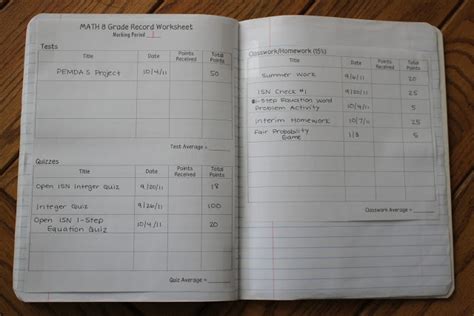 MATH 8 Grade Record Worksheet
Marking Period
Tests
Title Date Points Received Total Points
PEMDAS Project 10/4/11 50
Test Average =
Quizzes
Title Date Points Received Total Points
Open ISN Integer Quiz 9/20/11 18
Integer Quiz 9/26/11 100
Open ISN 1-Step Equation Quiz 10/4/11 20
Quiz Average =
Classwork/Homework (15%)
Title Date Points Received Total Points
Summer Work 9/6/11 20
ISN Check #1 9/20/11 25
1-Step Equation Word Problem Activity 10/5/11 5
Interim Homework 10/7/11 25
Fair Probability Game 1/3 5
Classwork Average =